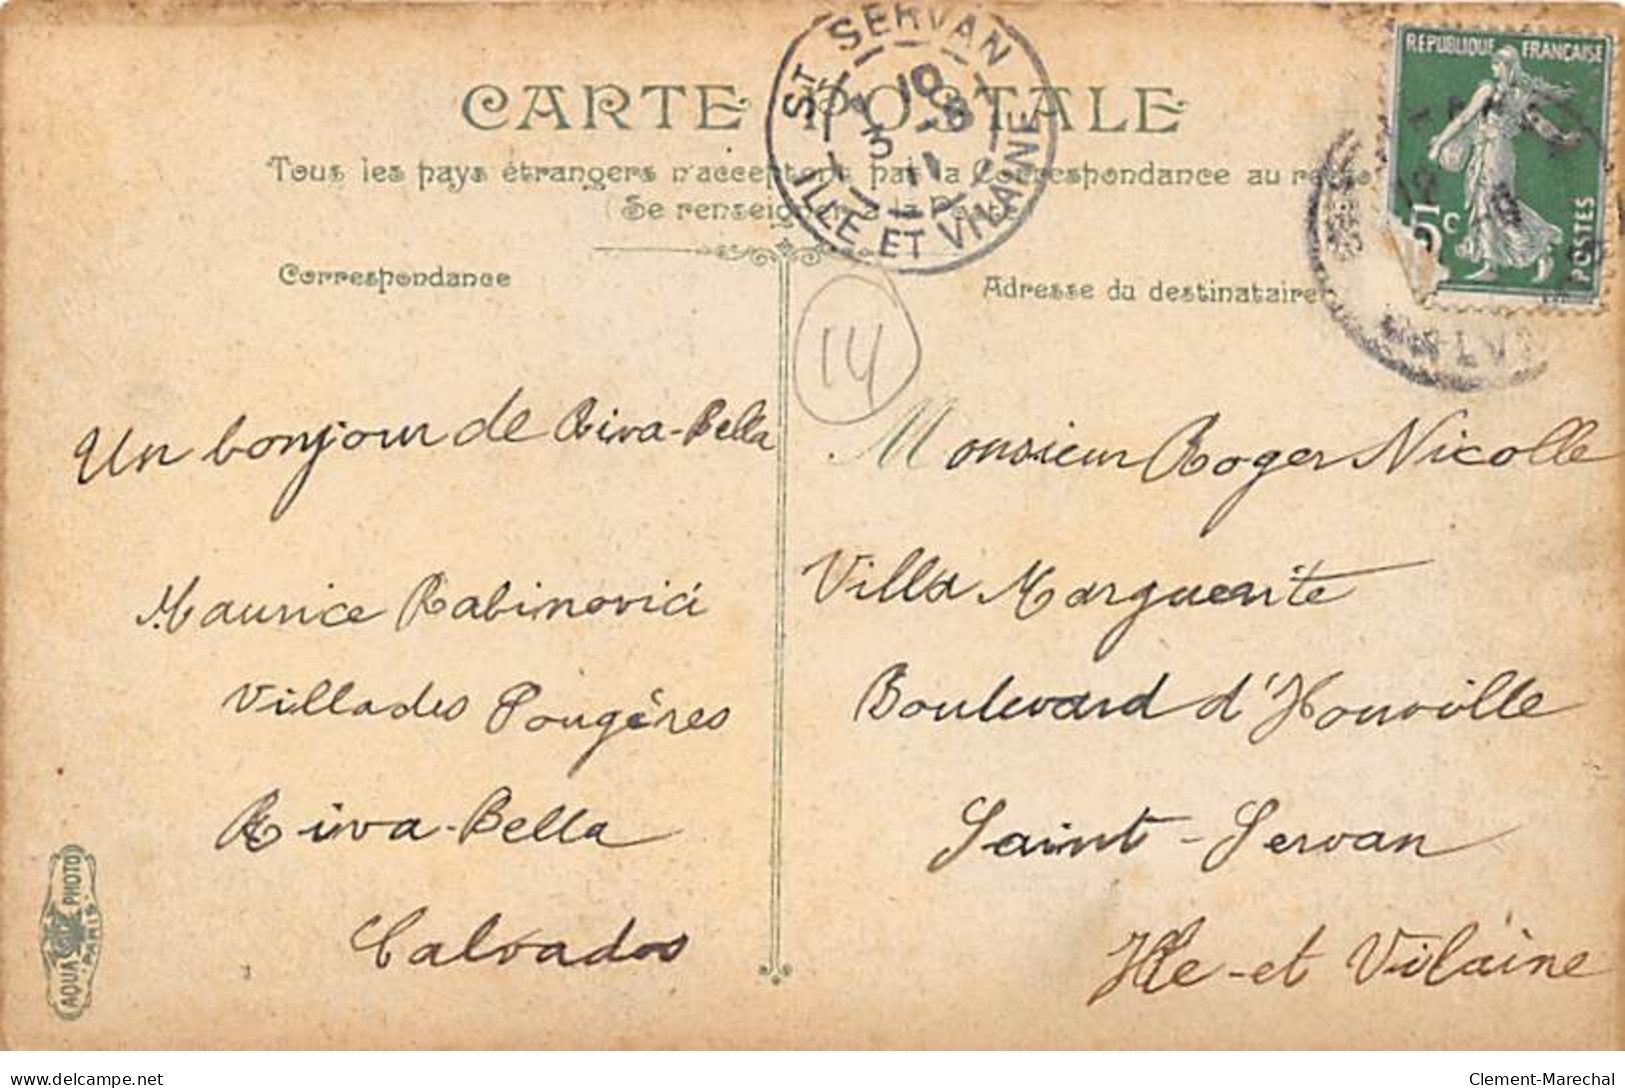 CARTE POSTALE
Tous les pays étrangers n'acceptent pas la Correspondance au
(Se renseigner à la Poste
Correspondance
Adresse du destinataire
ST SERVAN
10-8
3 11
ILLE ET VILAINE
REPUBLIQUE FRANÇAISE
5c
POSTES
14
Un bonjour de Riva-Bella
Maurice Rabinovici
Villa des Fougéres
Riva-Bella
Calvados
Monsieur Roger Nicolle
Villa Marguerite
Boulevard d'Houville
Saint-Servan
Ille-et Vilaine
AQUA PHOTO
PARIS
delcampe.net
Clement-Marechal